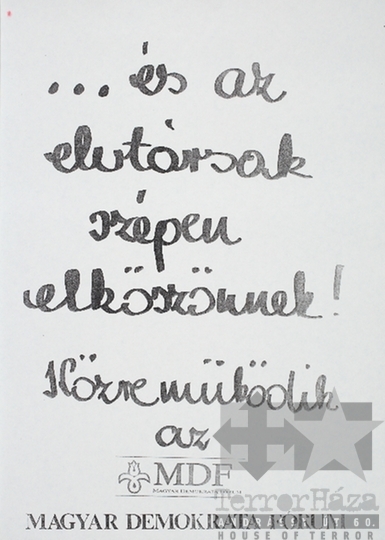 ... és az
elvtársak
szépen
elköszönnek!
Közreműködik
az
MDF
MAGYAR DEMOKRATA FÓRUM
MAGYAR DEMOKRATA FÓRUM
TerrorHáza
ANDRÁSSY ÚT 60.
HOUSE OF TERROR